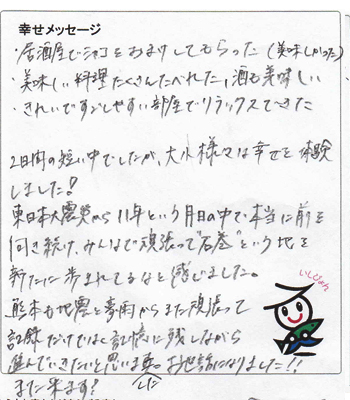 幸せメッセージ
・居酒屋でシャコをおまけしてもらった(美味しかった)
・美味しい料理たくさんたべれた、酒も美味しい
・きれいですごしやすい部屋でリラックスできた
2日間の短い中でしたが、大小様々な幸せを体験
しました!
東日本大震災から11年という月日の中で本当に前を
向き続け、みんなで頑張って"石巻"という地を
新たに歩まれてるなと感じました。
熊本も地震と豪雨からまた頑張って
記録だけではなく記憶に残しながら
進んでいきたいと思います。お世話になりました!!
した
また来ます!
いしぴょん